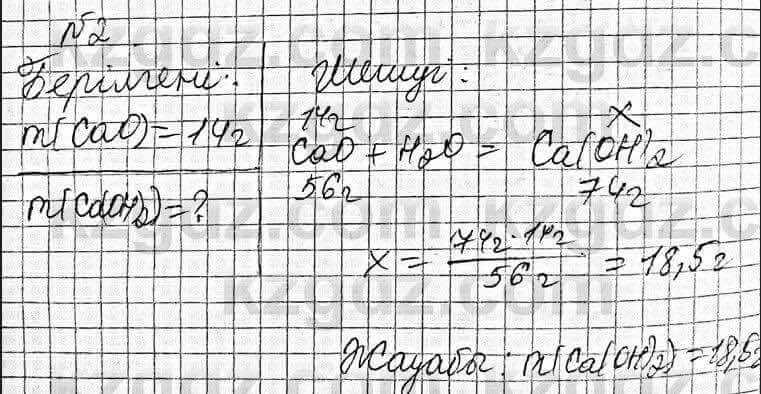 №2
Берілгені:
m(CaO)=14г
m(Ca(OH)2)=?
Шешуі:
14г x
CaO + H2O = Ca(OH)2
56г 74г
x = 74г·14г / 56г = 18,5г
Жауабы: m(Ca(OH)2)=18,5г
kzgdz.com